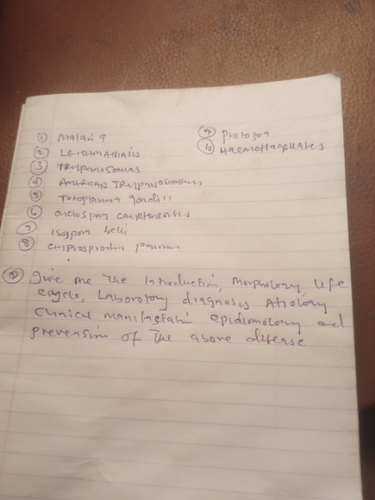 ① Malaria
② LEISHMANIASIS
③ TRypanosomias
④ American TRypanosomias
⑤ Toxoplasma gondii
⑥ ciclospora cayetanensis
⑦ Isospora belli
⑧ Cryptosporodium parvum
⑨ protozoa
⑩ HaemoFlagellates
give me The Introduction, Morphology, Life
cycle, Laboratory diagnosis Atiology
clinical manifastatin epidiomology and
prevension of The above disease